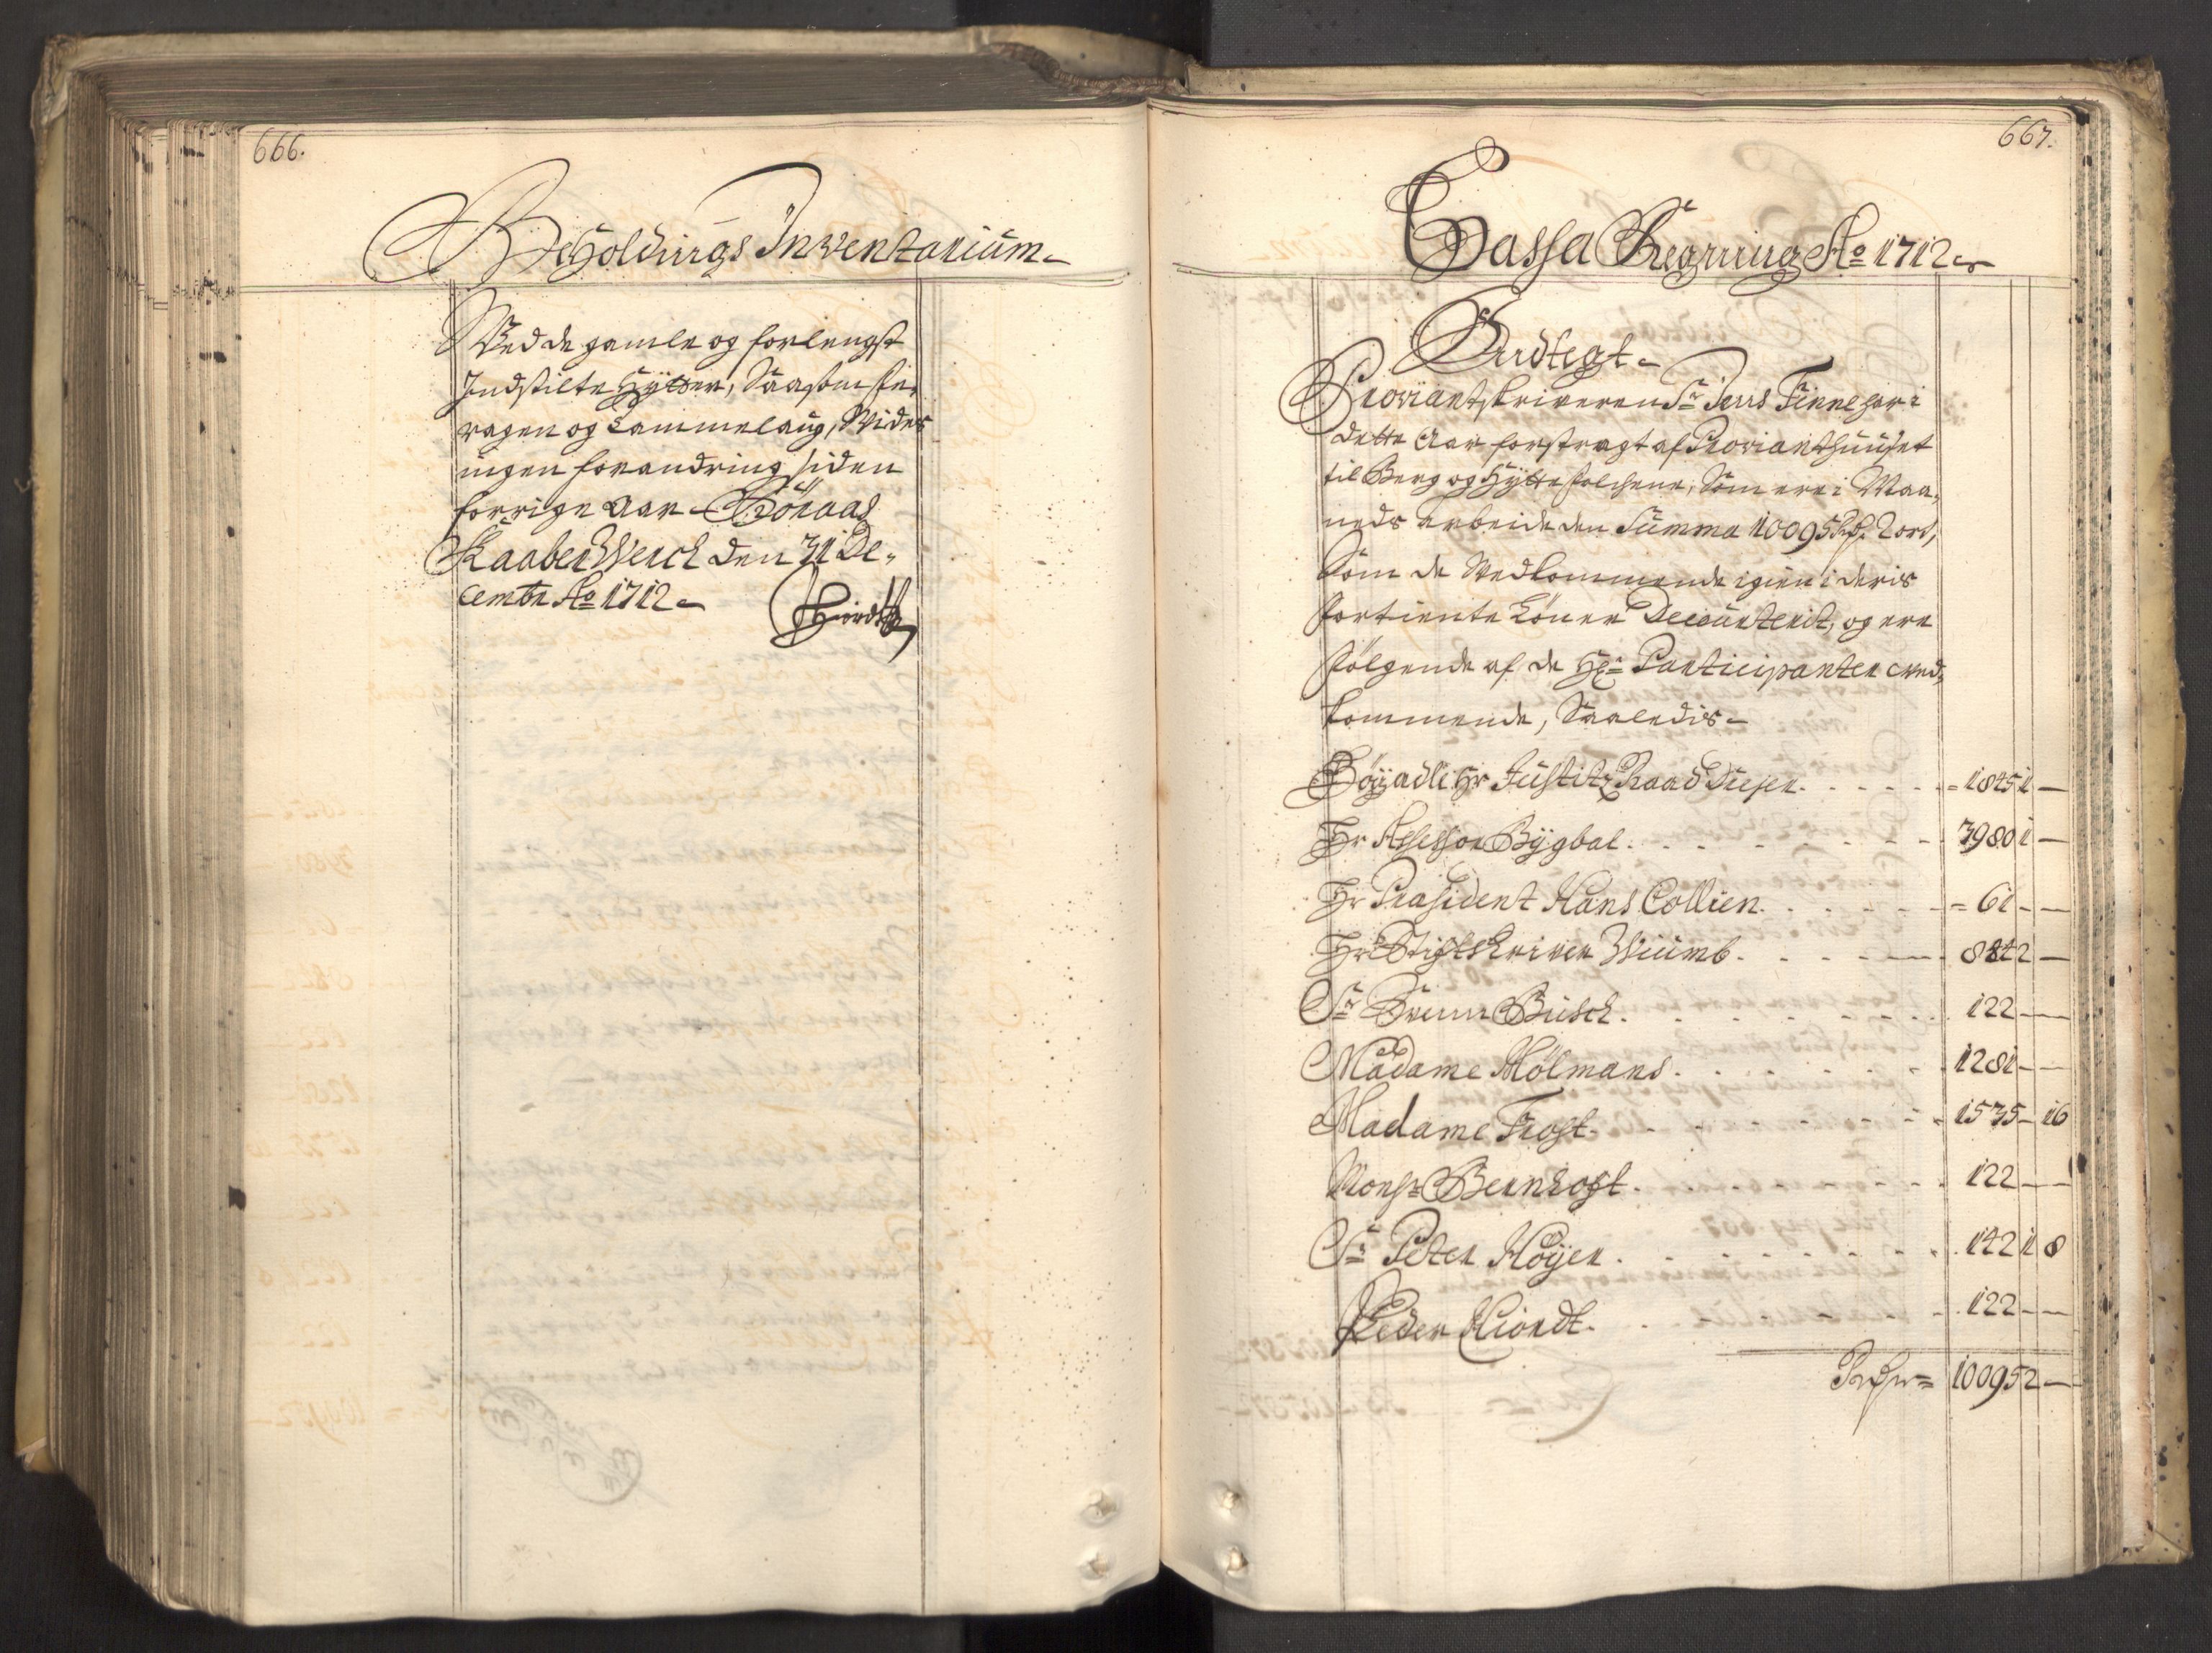 666.
Beholdnings Inventarium
Wed de gamle og forlengst
Indstilte Hÿtter, Saasom fe,
ragen og Lammelaug, Wides
ingen forandring siden
forrige Aar. Röraas
Kaaber Werck den 31 De,
cembr Ao 1712
PHiordt
667.
Cassa Regning Ao 1712
Indtegt
Proviantskriveren Sr Jens Finne har i
dette Aar forstragt af Provianthuuset
til Berg og Hÿtte folchene, Som ere i Maa,
neds arbeide den Summa 10095 Rdr 2 ort,
Som de Vedkommende igien i deris
fortiente Löner Decourterit, og ere
fölgende af de Hr: Participanter ved,
kommende, Saaledis
Höÿadle Hr Justitz Raad Dreÿer . . . . . = 1845 1 —
Hr Assessor Bÿgbal . . . . . 3980 1 —
Hr Præsident Hans Collien . . . . . = 61 - —
Hr Stiftskriver Wiumb . . . . . 884 2 —
Sr Svenn Büsch . . . . . 122 — —
Madame Hölmans . . . . . 1281 - —
Madame Frost . . . . . 1535 - 16
Monsr Bernhoft . . . . . 122 — —
Sr Peter Höÿer . . . . . 142 1 8
Peder Hiordt . . . . . 122 — —
Rdr = 10095 2 —